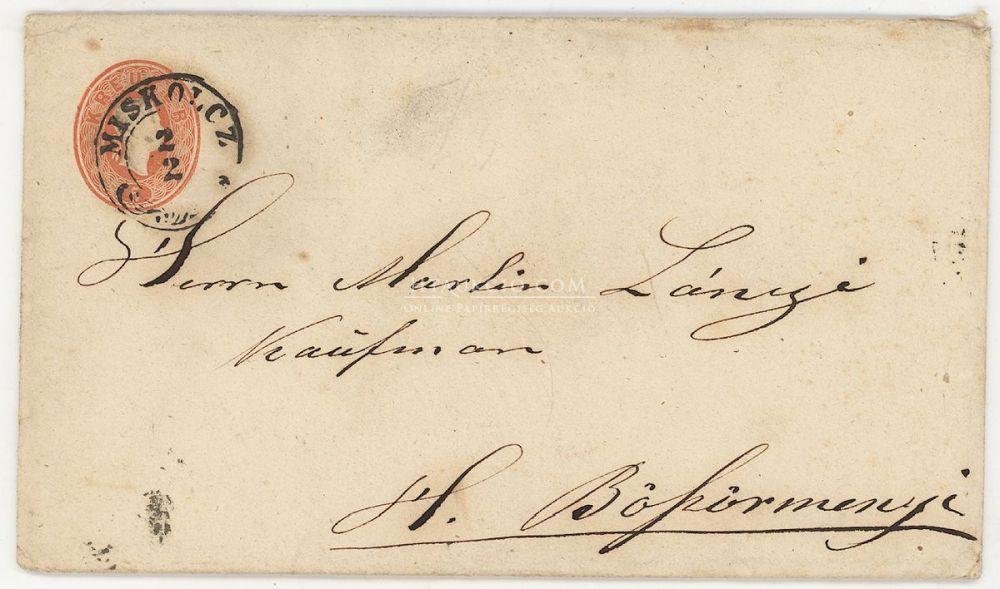 KREU
MISKOLCZ
2
2
Herrn Martin Lánczi
Kaufman
H. Böszörmenyi
ONLINE PAPÍRRÉGISÉG AUKCIÓ